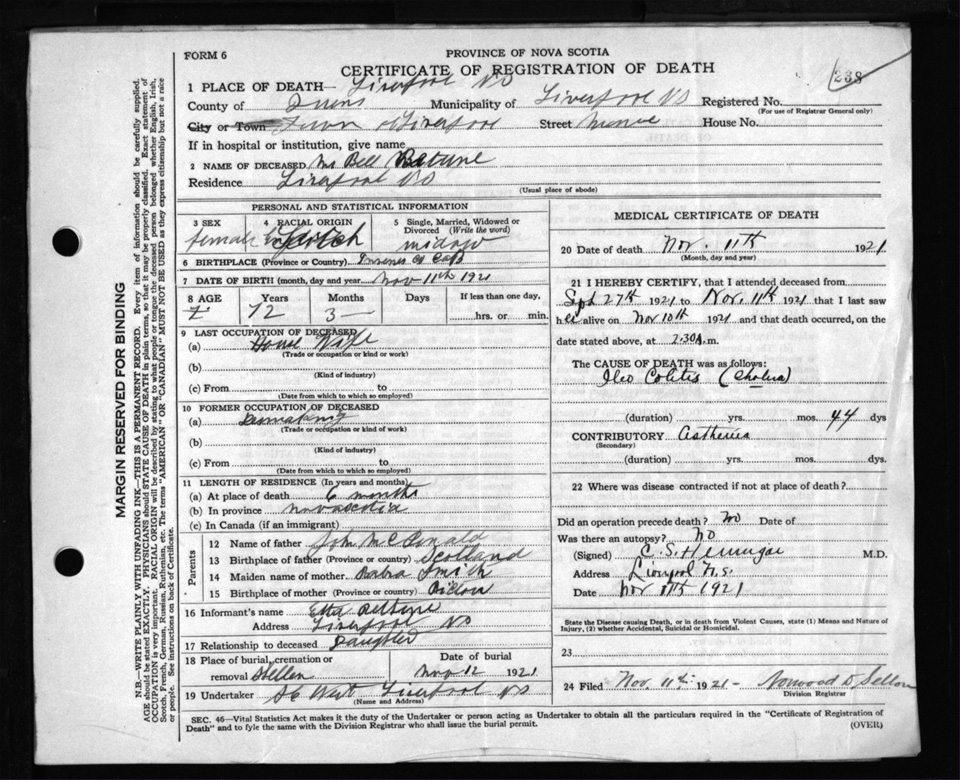 FORM 6
PROVINCE OF NOVA SCOTIA
338
CERTIFICATE OF REGISTRATION OF DEATH
1 PLACE OF DEATH— Liverpool NS
County of Queens Municipality of Liverpool NS Registered No.
(For use of Registrar General only)
City or Town Town of Liverpool Street House No.
If in hospital or institution, give name
2 NAME OF DECEASED Mrs Bell Bethune
Residence Liverpool NS
(Usual place of abode)
PERSONAL AND STATISTICAL INFORMATION
3 SEX female
4 RACIAL ORIGIN Scotch
5 Single, Married, Widowed or Divorced (Write the word)
widow
6 BIRTHPLACE (Province or Country)
7 DATE OF BIRTH (month, day and year) Nov 11th 1921
8 AGE Years Months Days If less than one day,
72 3 — hrs. or min.
9 LAST OCCUPATION OF DECEASED
(a) House Wife
(Trade or occupation or kind or work)
(b)
(Kind of industry)
(c) From to
(Date from which to which so employed)
10 FORMER OCCUPATION OF DECEASED
(a)
(Trade or occupation or kind of work)
(b)
(Kind of industry)
(c) From to
(Date from which to which so employed)
11 LENGTH OF RESIDENCE (In years and months)
(a) At place of death 6 months
(b) In province novascotia
(c) In Canada (if an immigrant)
Parents
12 Name of father John McDonald
13 Birthplace of father (Province or country) Scotland
14 Maiden name of mother Barbra Smith
15 Birthplace of mother (Province or country) Pictou
16 Informant's name Etta Bethune
Address Liverpool NS
17 Relationship to deceased Daughter
18 Place of burial, cremation or Date of burial
removal Nov 12 1921
19 Undertaker West Liverpool NS
(Name and Address)
MEDICAL CERTIFICATE OF DEATH
20 Date of death Nov. 11th 1921
(Month, day and year)
21 I HEREBY CERTIFY, that I attended deceased from
Sept 27th 1921 to Nov. 11th 1921 that I last saw
her alive on Nov 10th 1921 and that death occurred, on the
date stated above, at 2.30 A.m.
The CAUSE OF DEATH was as follows:
Ileo Colitis (Cholera)
(duration) yrs. mos. 44 dys
CONTRIBUTORY Asthenia
(Secondary)
(duration) yrs. mos. dys.
22 Where was disease contracted if not at place of death?
Did an operation precede death? No Date of
Was there an autopsy? No
(Signed) C. S. M.D.
Address Liverpool N.S.
Date Nov 11th 1921
State the Disease causing Death, or in death from Violent Causes, state (1) Means and Nature of
Injury, (2) whether Accidental, Suicidal or Homicidal.
23
24 Filed Nov. 11th 1921— Norwood D. Sellon
Division Registrar
SEC. 46—Vital Statistics Act makes it the duty of the Undertaker or person acting as Undertaker to obtain all the particulars required in the "Certificate of Registration of
Death" and to fyle the same with the Division Registrar who shall issue the burial permit.
(OVER)
MARGIN RESERVED FOR BINDING
N.B.—WRITE PLAINLY WITH UNFADING INK—THIS IS A PERMANENT RECORD. Every item of information should be carefully supplied.
AGE should be stated EXACTLY. PHYSICIANS should STATE CAUSE OF DEATH in plain terms, so that it may be properly classified. Exact statement of
OCCUPATION is very important. RACIAL ORIGIN will be described by stating to what people or tongue the deceased person belonged whether English, Irish,
Scotch, French, German, Russian, Ruthenian, etc. The terms "AMERICAN" OR "CANADIAN" MUST NOT BE USED as they express citizenship but not a race
or people. See instructions on back of Certificate.